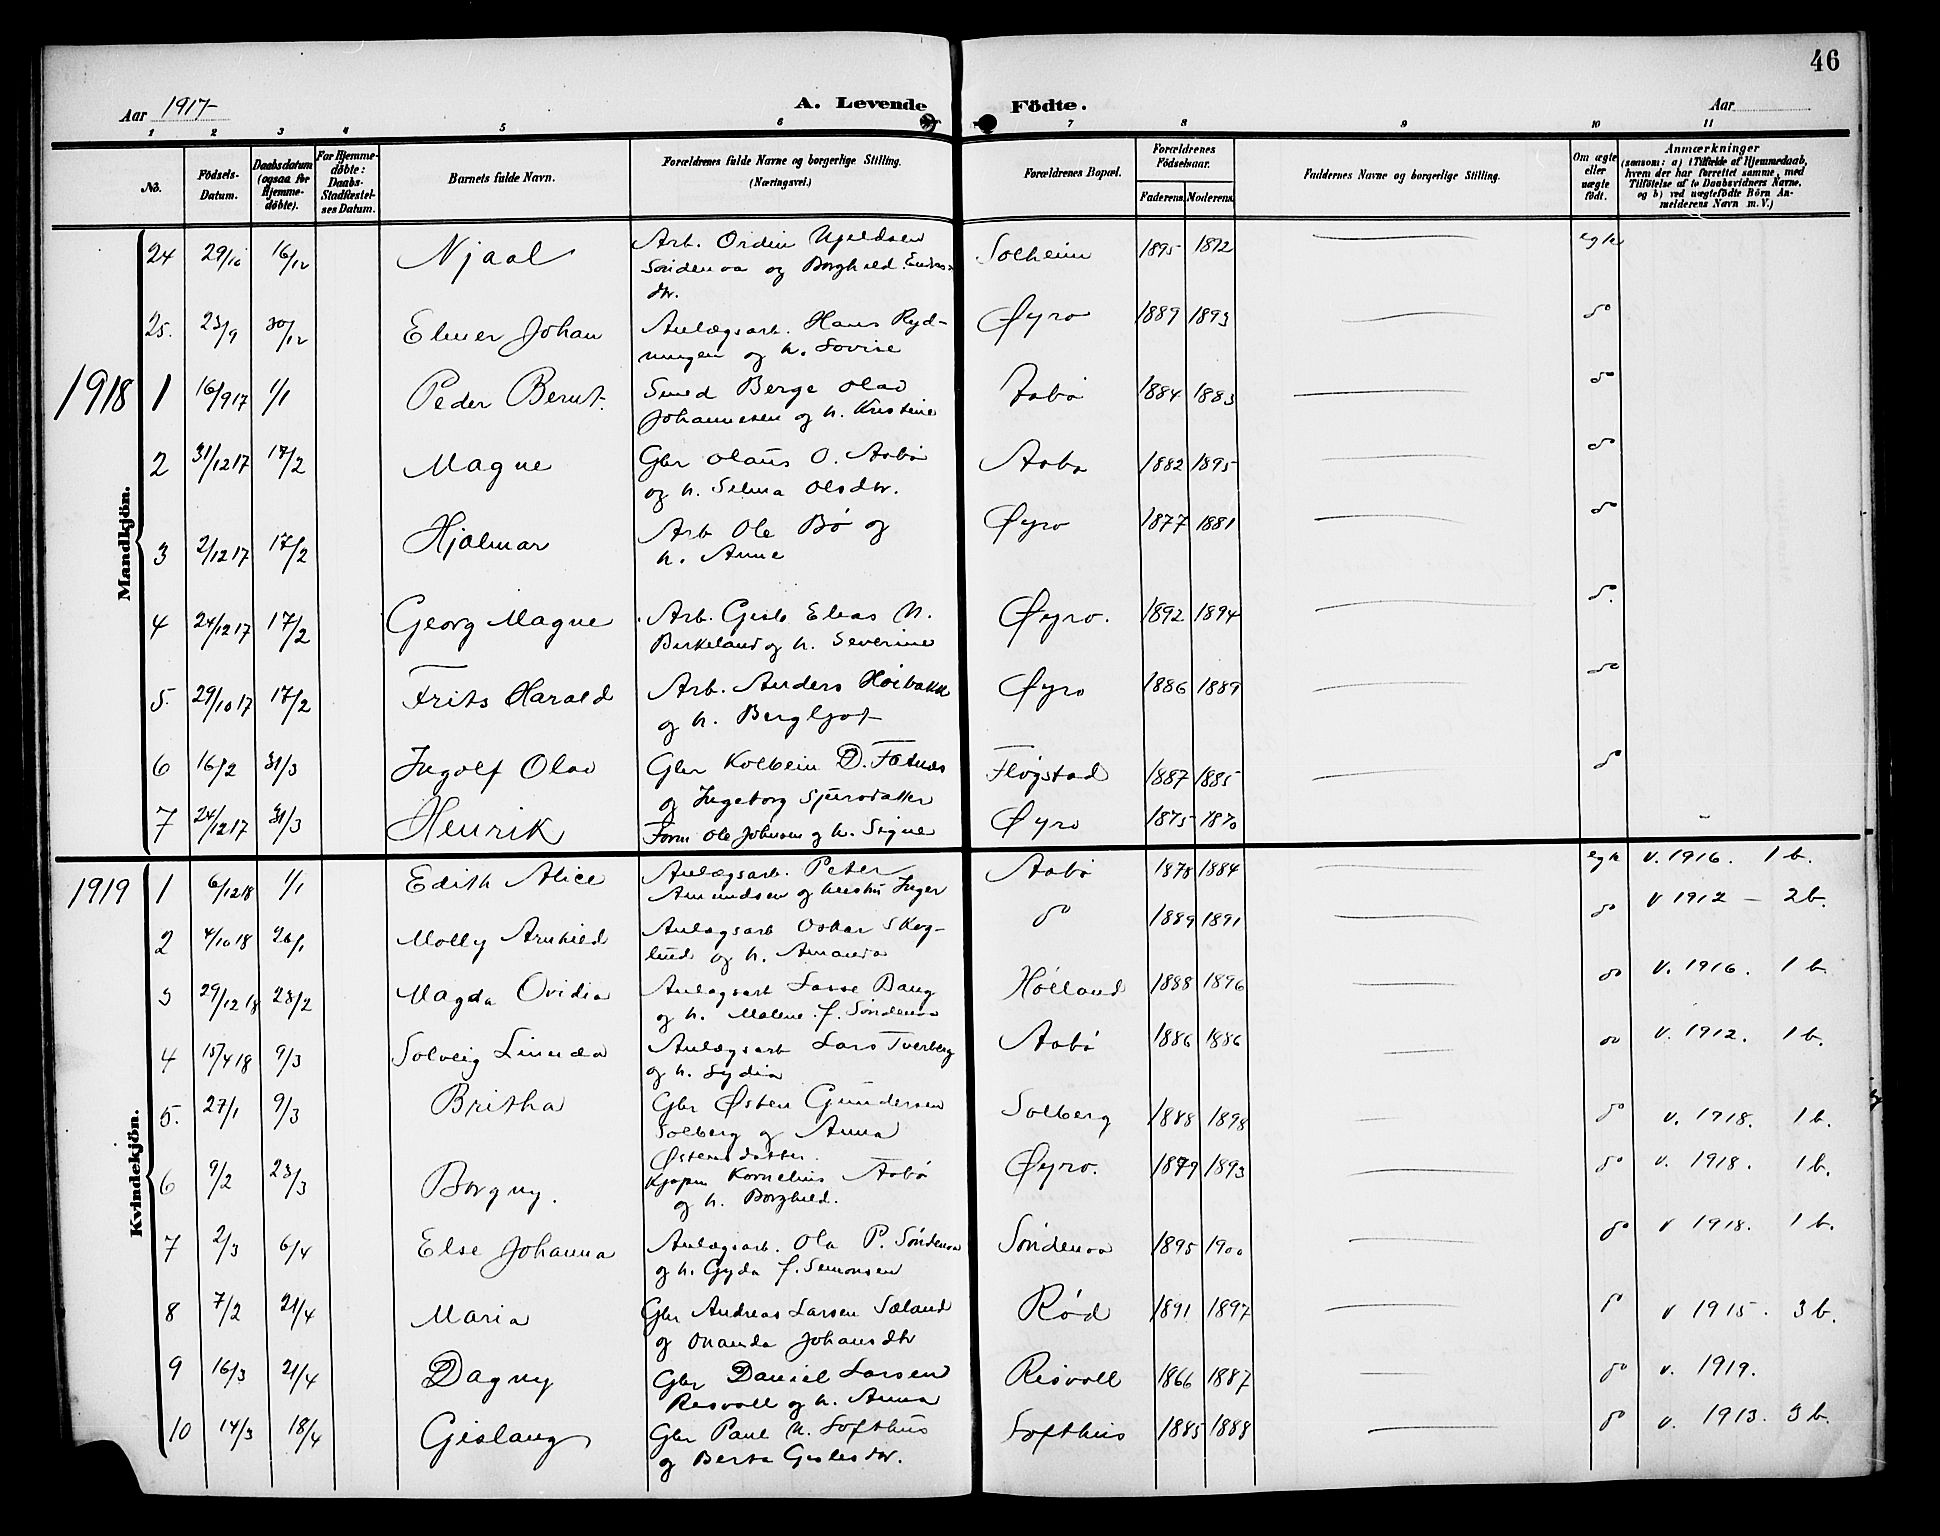 46
Aar 1917
A. Levende Födte.
Aar
1 2 3 4 5 6 7 8 9 10 11
No.
Födsels-Datum.
Daabsdatum (ogsaa for Hjemme-döbte).
For Hjemme-döbte: Daabs-Stadfæstel-ses Datum.
Barnets fulde Navn.
Forældrenes fulde Navne og borgerlige Stilling. (Næringsvei.)
Forældrenes Bopæl.
Forældrenes Födselsaar.
Faderens. Moderens.
Faddernes Navne og borgerlige Stilling.
Om ægte eller uægte födt.
Anmærkninger (saasom: a) i Tilfælde af Hjemmedaab, hvem der har forrettet samme, med Tilföielse af to Daabsvidners Navne, og b) ved uægtefödte Börn An-melderens Navn m. V.)
Mandkjön.
24 29/10 16/12 Njaal Arb. Sondenaa og Borghild Solheim 1895 1892 egte
25. 23/9 30/12 Elmer Johan Anlægsarb. Hans Ryd-
ningen og h. Lovise Øyro 1889 1893 do
1918 1 16/917 1/1 Peder Bernt. Smed Berge Olav
Johannesen og h. Kristine Aabø 1884 1883 do
2 31/1217 17/2 Magne Gbr Olaus O. Aabø
og h. Selma Olsdtr. Aabø 1882 1895 do
3 2/1217 17/2 Hjalmar Arb Ole Bø og
h. Anne Øyro 1877 1881 do
4 24/1217 17/2 Georg Magne Arb. Elias N.
Birkeland og h. Severine Øyro. 1892 1894 do.
5. 29/1017 17/2 Frits Harald Arb. Anders
og h. Bergljot Øyro 1886 1889 do
6 16/2 31/3 Ingolf Olav Gbr Kolbein D. Fatnes
og Ingeborg Sjursdatter Fløgstad 1887 1885 do
7 24/1217 31/3 Henrik Form Ole Johnsen og h. Signe Øyro 1875 1870 "
Kvindekjön.
1919 1 6/1218 1/1 Edith Alice Anlægsarb. Peter
Amundsen og hustru Inger Aabø 1878 1884 egte v. 1916. 1 b.
2 4/1018 26/1 Molly Arnhild Anlægsarb Oskar Skog-
lund og h. Amanda do 1889 1891 do v 1912 – 2 b.
3 29/1218 23/2 Magda Ovidia Anlægsarb Lasse Bang
og h. Malene f. Søndenaa Høiland 1888 1896 do v. 1916. 1 b.
4 15/418 9/3 Solveig Linnda Anlægsarb Lars Tverberg
og h. Lydia Aabø 1886 1886 do v. 1912. 1 b.
5. 27/1 9/3 Britha Gbr Østen Gundersen
Solberg og Anna
Østensdatter. Solberg 1888 1898 do v. 1918. 1 b.
6 9/2 23/3 Borgny. Kjøpm Kornelius Aabø
og h. Borghild. Øyro. 1879 1893 do v. 1918. 1 b.
7 2/3 6/4 Else Johanna Anlægsarb. Ola P. Søndenaa
og h. Gyda f. Simonsen Søndenaa 1895 1900 do v 1918. 1 b.
8 7/2 21/4 Maria Gbr Andreas Larsen Sæland
og Johansdtr Rød 1891 1897 do v 1915. 3 b.
9 16/3 21/4 Dagny Gbr Daniel Larsen
Risvoll og h. Anna Risvoll 1866 1887 do v. 1919.
10 14/3 18/4 Gislaug Gbr Paul N. Lofthus
og Berta Gislesdtr. Lofthus 1885 1888 do v. 1913. 3 b.